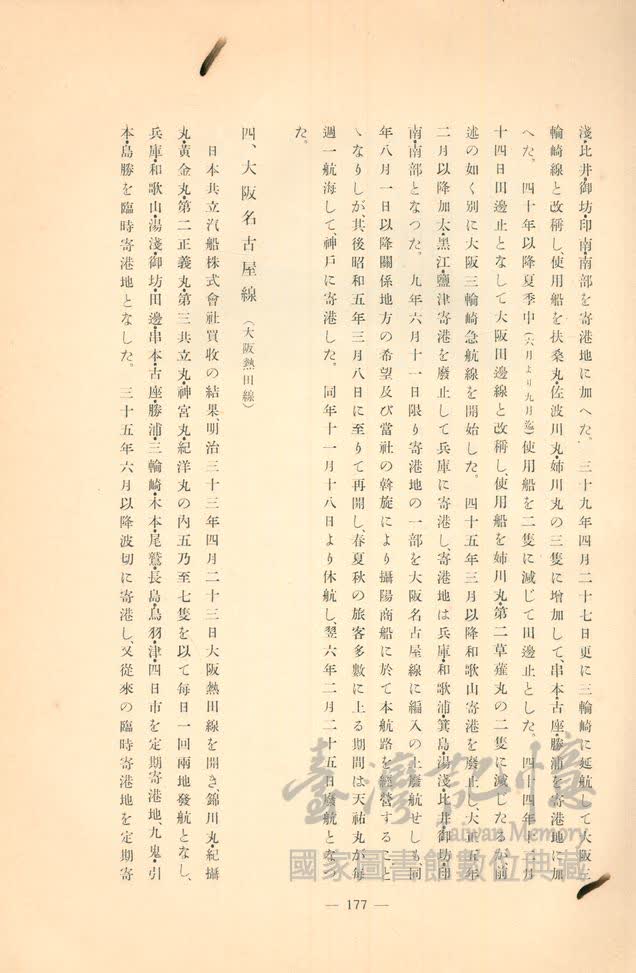 淺・比井・御坊・印南・南部を寄港地に加へた。三十九年四月二十七日更に三輪崎に延航して大阪三
輪崎線と改稱し、使用船を扶桑丸・佐波川丸・姉川丸の三隻に增加して、串本・古座・勝浦を寄港地に加
へた。四十年以降夏季中(六月より九月迄)使用船を二隻に減じて田邊止とした。四十四年十二月
十四日田邊止となして大阪田邊線と改稱し、使用船を姉川丸・第二草薙丸の二隻に減じたるが、前
述の如く別に大阪三輪崎急航線を開始した。四十五年三月以降和歌山寄港を廢止し、大正五年
二月以降加太・黑江・鹽津寄港を廢止して兵庫に寄港し、寄港地は兵庫・和歌浦・箕島・湯淺・比井・御坊・印
南・南部となつた。九年六月十一日限り寄港地の一部を大阪名古屋線に編入の上廢航せしも、同
年八月一日以降關係地方の希望及び當社の斡旋により攝陽商船に於て本航路を經營すること
ゝなりしが、其後昭和五年三月八日に至りて再開し、春夏秋の旅客多數に上る期間は天祐丸が每
週一航海して、神戶に寄港した。同年十一月十八日より休航し、翌六年二月二十五日廢航となつ
た。
四、大阪名古屋線(大阪熱田線)
日本共立汽船株式會社買收の結果、明治三十三年四月二十三日大阪熱田線を開き、錦川丸・紀攝
丸・黃金丸・第二正義丸・第三共立丸・神宮丸・紀洋丸の內五乃至七隻を以て每日一回兩地發航となし、
兵庫・和歌山・湯淺・御坊・田邊・串本・古座・勝浦・三輪崎・木本・尾鷲・長島・鳥羽・津・四日市を定期寄港地、九鬼・引
本・島勝を臨時寄港地となした。三十五年六月以降波切に寄港し、又從來の臨時寄港地を定期寄
— 177 —
臺灣記憶
Taiwan Memory
國家圖書館數位典藏